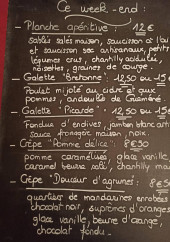 Ce week-end :
- Planche apéritive : 12 €
Sablés salés maison, saucisson à l'ail
et saucisson sec artisanaux, petits
légumes crus, chantilly acidulée,
noisettes, graines de courge.
- Galette "Bretonne" : 12,50 ou 15
Poulet mijoté au cidre et aux
pommes, andouille de Guémené
- Galette "Picarde" : 12,50 ou 15
Fondue d'endives, jambon blanc
sauce fromagère maison, noix.
- Crêpe "Pomme délice" : 8€50
pomme caramélisée, glace vanille,
caramel beurre salé, chantilly
- Crêpe "Douceur d'agrumes" : 8€5
quartiers de mandarines enrobées
chocolat noir, suprêmes d'orange
glace vanille, beurre d'orange,
chocolat fondu.